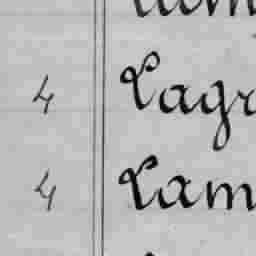 4 Lagr
4 Lam